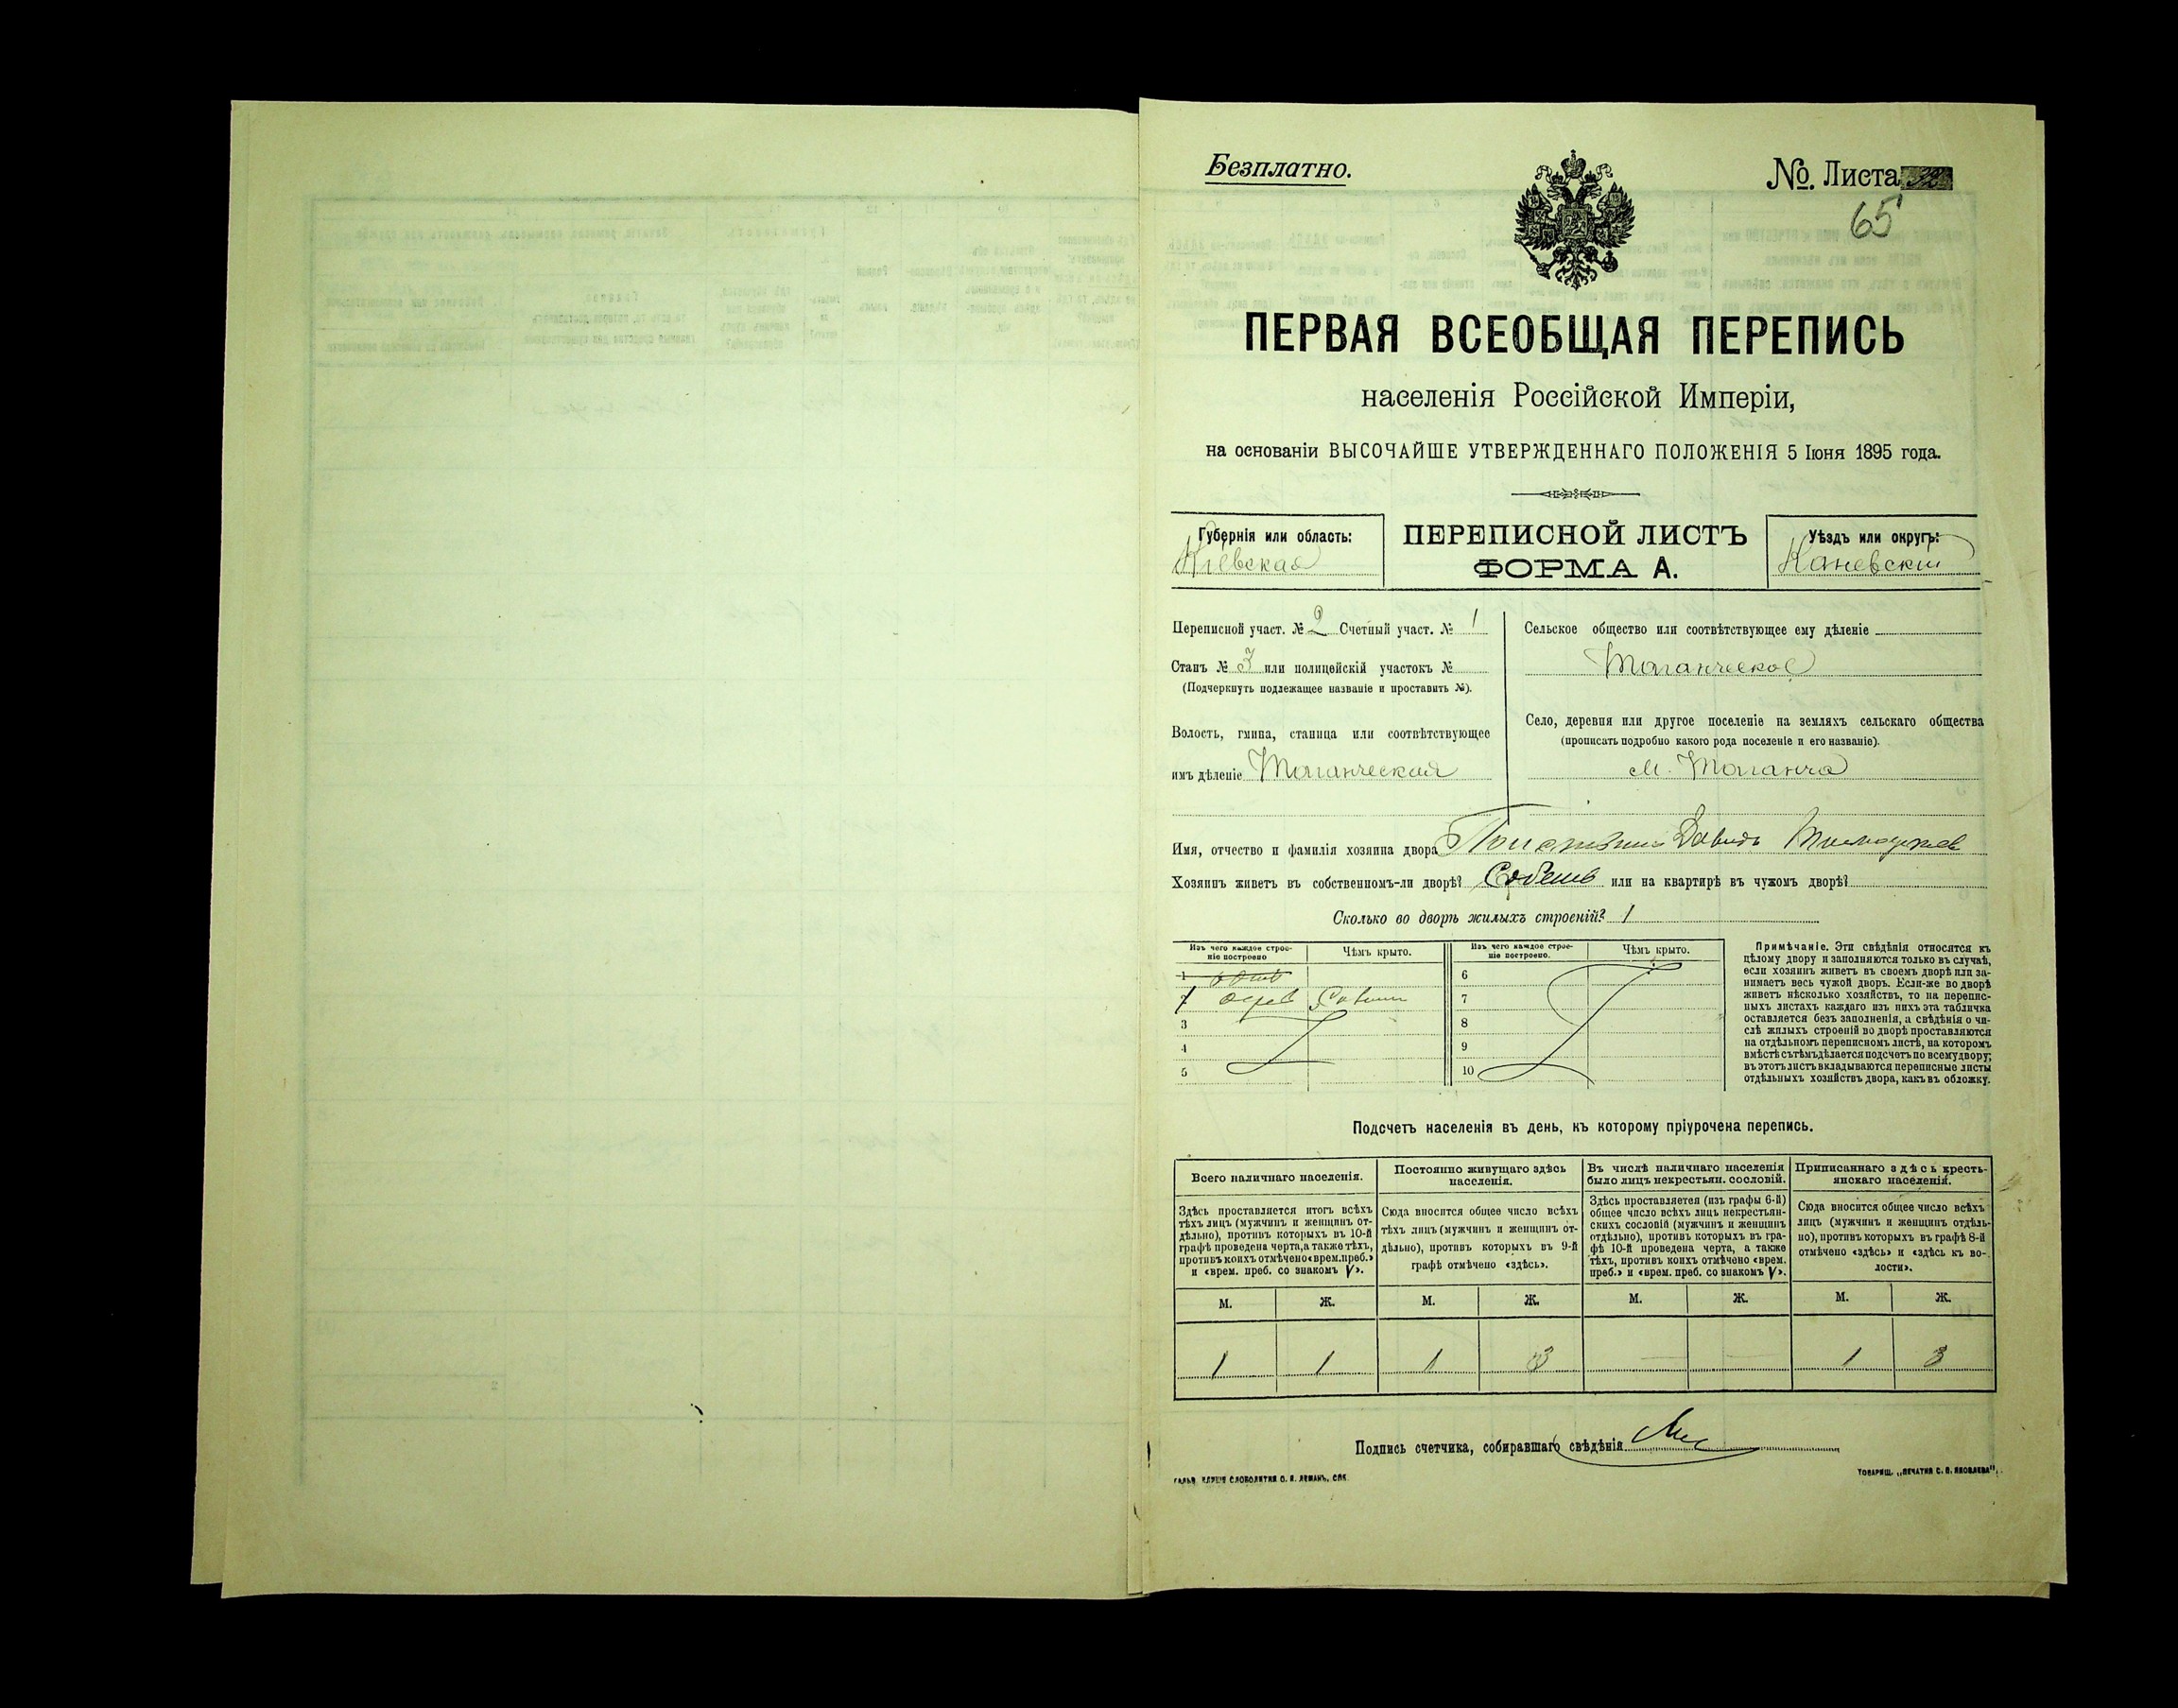 Безплатно.
№. Листа
65
ПЕРВАЯ ВСЕОБЩАЯ ПЕРЕПИСЬ
населенія Россійской Имперіи,
на основаніи ВЫСОЧАЙШЕ УТВЕРЖДЕННАГО ПОЛОЖЕНІЯ 5 Іюня 1895 года.
Губернія или область:
Кіевская
ПЕРЕПИСНОЙ ЛИСТЪ
ФОРМА А.
Уѣздъ или округъ:
Каневскій
Переписной участ. № 2 Счетный участ. № 1
Станъ № 3 или полицейскій участокъ №
(Подчеркнуть подлежащее названіе и проставить №).
Волость, гмина, станица или соотвѣтствующее
имъ дѣленіе Таганческая
Сельское общество или соотвѣтствующее ему дѣленіе
Таганческое
Село, деревня или другое поселеніе на земляхъ сельскаго общества
(прописать подробно какого рода поселеніе и его названіе).
м. Таганча
Имя, отчество и фамилія хозяина двора Давидъ
Хозяинъ живетъ въ собственномъ-ли дворѣ? или на квартирѣ въ чужомъ дворѣ?
Сколько во дворѣ жилыхъ строеній? 1
Изъ чего каждое строе-
ніе построено
Чѣмъ крыто.
1
1
3
4
5
Изъ чего каждое строе-
ніе построено.
Чѣмъ крыто.
6
7
8
9
10
Примѣчаніе. Эти свѣдѣнія относятся къ
цѣлому двору и заполняются только въ случаѣ,
если хозяинъ живетъ въ своемъ дворѣ или за-
нимаетъ весь чужой дворъ. Если-же во дворѣ
живетъ нѣсколько хозяйствъ, то на перепис-
ныхъ листахъ каждаго изъ нихъ эта табличка
оставляется безъ заполненія, а свѣдѣнія о чи-
слѣ жилыхъ строеній во дворѣ проставляются
на отдѣльномъ переписномъ листѣ, на которомъ
вмѣстѣ съ тѣмъ дѣлается подсчетъ по всему двору;
въ этотъ листъ вкладываются переписные листы
отдѣльныхъ хозяйствъ двора, какъ въ обложку.
Подсчетъ населенія въ день, къ которому пріурочена перепись.
Всего наличнаго населенія.
Здѣсь проставляется итогъ всѣхъ
тѣхъ лицъ (мужчинъ и женщинъ от-
дѣльно), противъ которыхъ въ 10-й
графѣ проведена черта, а также тѣхъ,
противъ коихъ отмѣчено «врем. преб.»
и «врем. преб. со знакомъ V».
Постоянно живущаго здѣсь
населенія.
Сюда вносится общее число всѣхъ
тѣхъ лицъ (мужчинъ и женщинъ от-
дѣльно), противъ которыхъ въ 9-й
графѣ отмѣчено «здѣсь».
Въ числѣ наличнаго населенія
было лицъ некрестьян. сословій.
Здѣсь проставляется (изъ графы 6-й)
общее число всѣхъ лицъ некрестьян-
скихъ сословій (мужчинъ и женщинъ
отдѣльно), противъ которыхъ въ гра-
фѣ 10-й проведена черта, а также
тѣхъ, противъ коихъ отмѣчено «врем.
преб.» и «врем. преб. со знакомъ V».
Приписаннаго здѣсь кресть-
янскаго населенія.
Сюда вносится общее число всѣхъ
лицъ (мужчинъ и женщинъ отдѣль-
но), противъ которыхъ въ графѣ 8-й
отмѣчено «здѣсь» и «здѣсь къ во-
лости».
М. Ж. М. Ж. М. Ж. М. Ж.
1 1 1 3 — — 1 3
Подпись счетчика, собиравшаго свѣдѣнія
ТОВАРИЩ. „ПЕЧАТНЯ С. П. ЯКОВЛЕВА".